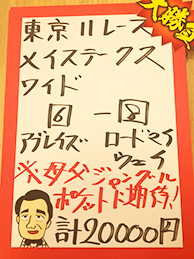 大勝負
東京11レース
メイステークス
ワイド
6 - 8
アブレイズ ロードマイウェイ
※母父ジャングル
ポケットに期待!
計20000円